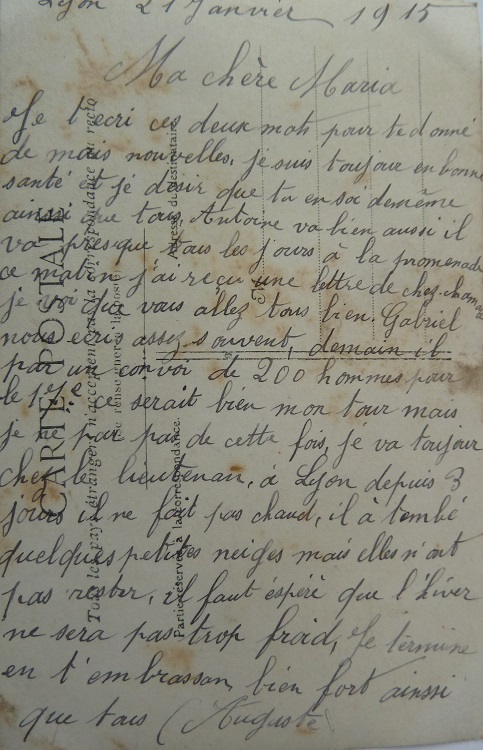 Lyon 21 Janvier 1915
Ma chère Maria
Je t'ecri ces deux mots pour te donné
de mais nouvelles, je suis toujour en bonne
santé et je désir que tu en soi de même
ainsi que tous, Antoine va bien aussi il
va presque tous les jours à la promenade
ce matin j'ai reçu une lettre de chez
je voi que vous allez tous bien. Gabriel
nous ecri assez souvent, demain il
par un convoi de 200 hommes pour
le ce serait bien mon tour mais
je ne par pas de cette fois, je va toujour
chez le lieutenan, à Lyon depuis 3
jours il ne fait pas chaud, il à tembé
quelques petites neiges mais elles n'ont
pas rester, il faut éspéré que l'hiver
ne sera pas trop froid, Je termine
en t'embrassan bien fort ainssi
que tous (Auguste)
CARTE POSTALE
Tous les pays étrangers n'acceptent pas la correspondance au recto
(Se renseigner à la poste)
Partie réservée à la correspondance.
Adresse du destinataire